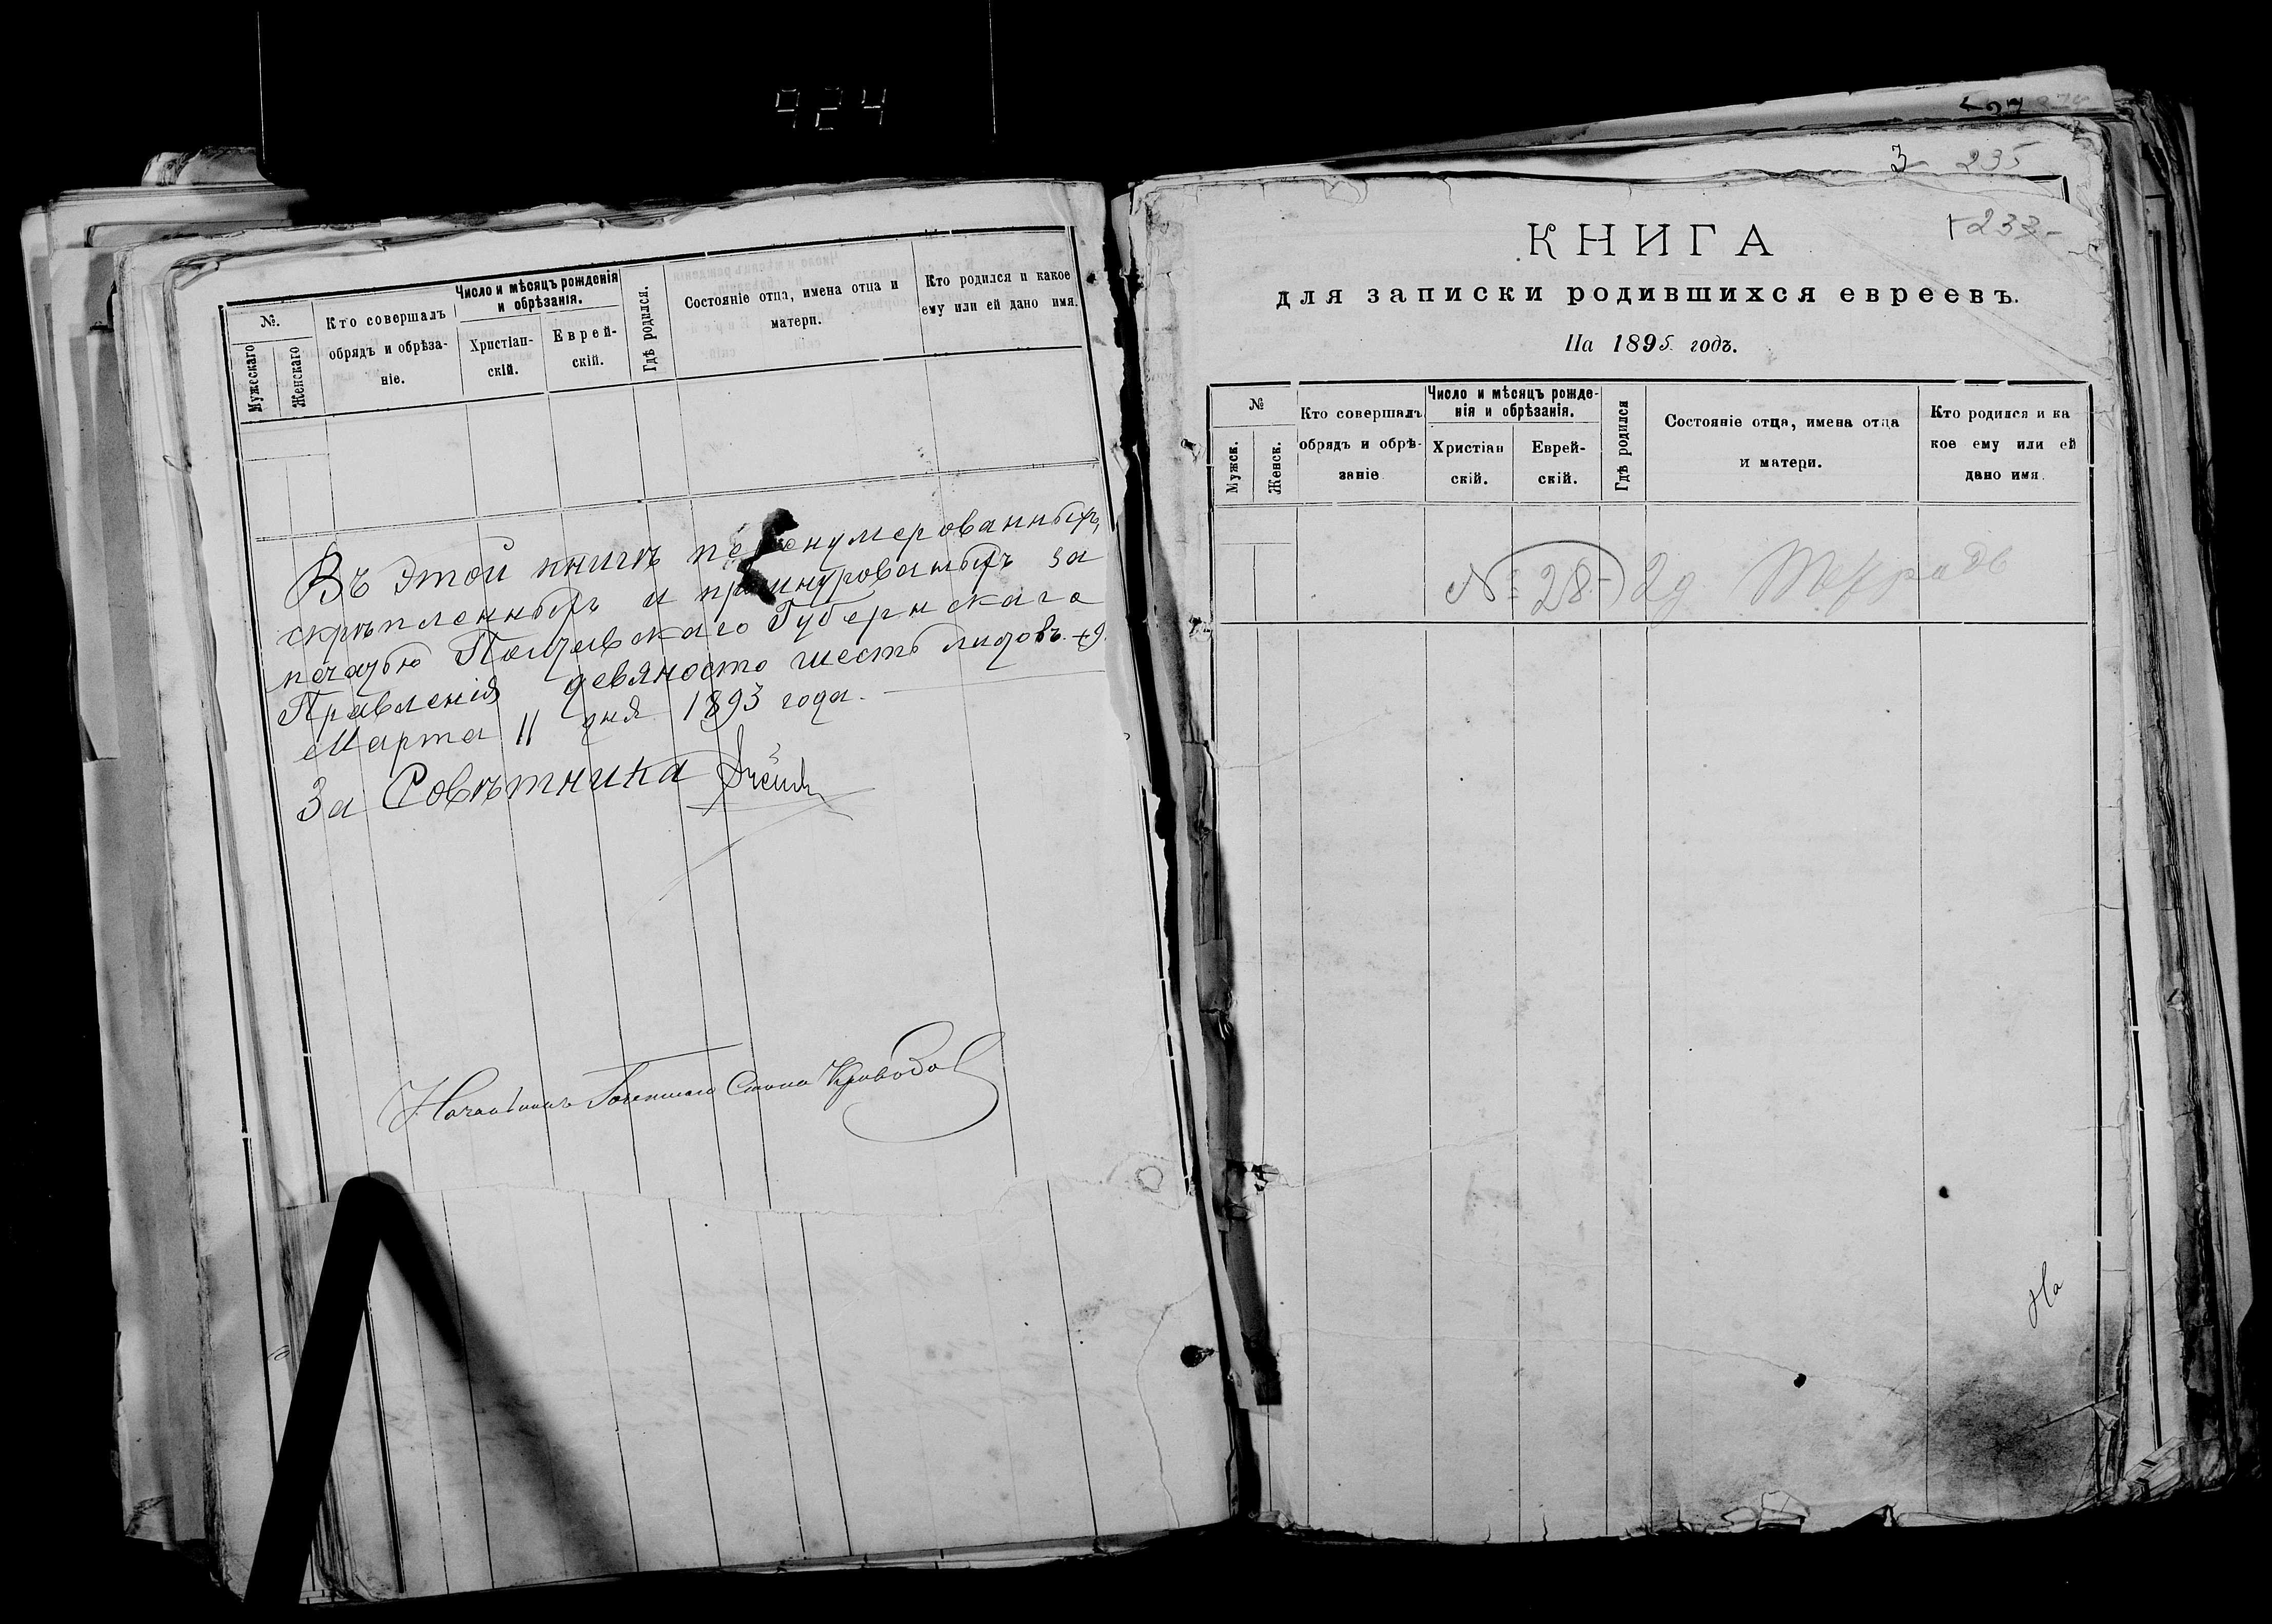 924
№.
Мужескаго
Женскаго
Кто совершалъ
обрядъ и обрѣза-
ніе.
Число и мѣсяцъ рожденія
и обрѣзанія.
Христіан-
скій.
Еврей-
скій.
Гдѣ родился.
Состояніе отца, имена отца и
матери.
Кто родился и какое
ему или ей дано имя.
Въ этой книгѣ перенумерованныхъ,
скрѣпленныхъ и прошнурованныхъ за
печатью Губернскаго
Правленія девяносто шесть листовъ
Марта 11 дня 1893 года.
За Совѣтника
Начальникъ Стола
3 235
233
КНИГА
для записки родившихся евреевъ.
На 1895 годъ.
№
Мужск.
Женск.
Кто совершалъ
обрядъ и обрѣ-
заніе
Число и мѣсяцъ рожде-
нія и обрѣзанія.
Христіан
скій.
Еврей-
скій.
Гдѣ родился
Состояніе отца, имена отца
и матери.
Кто родился и ка
кое ему или ей
дано имя.
№ 28
На